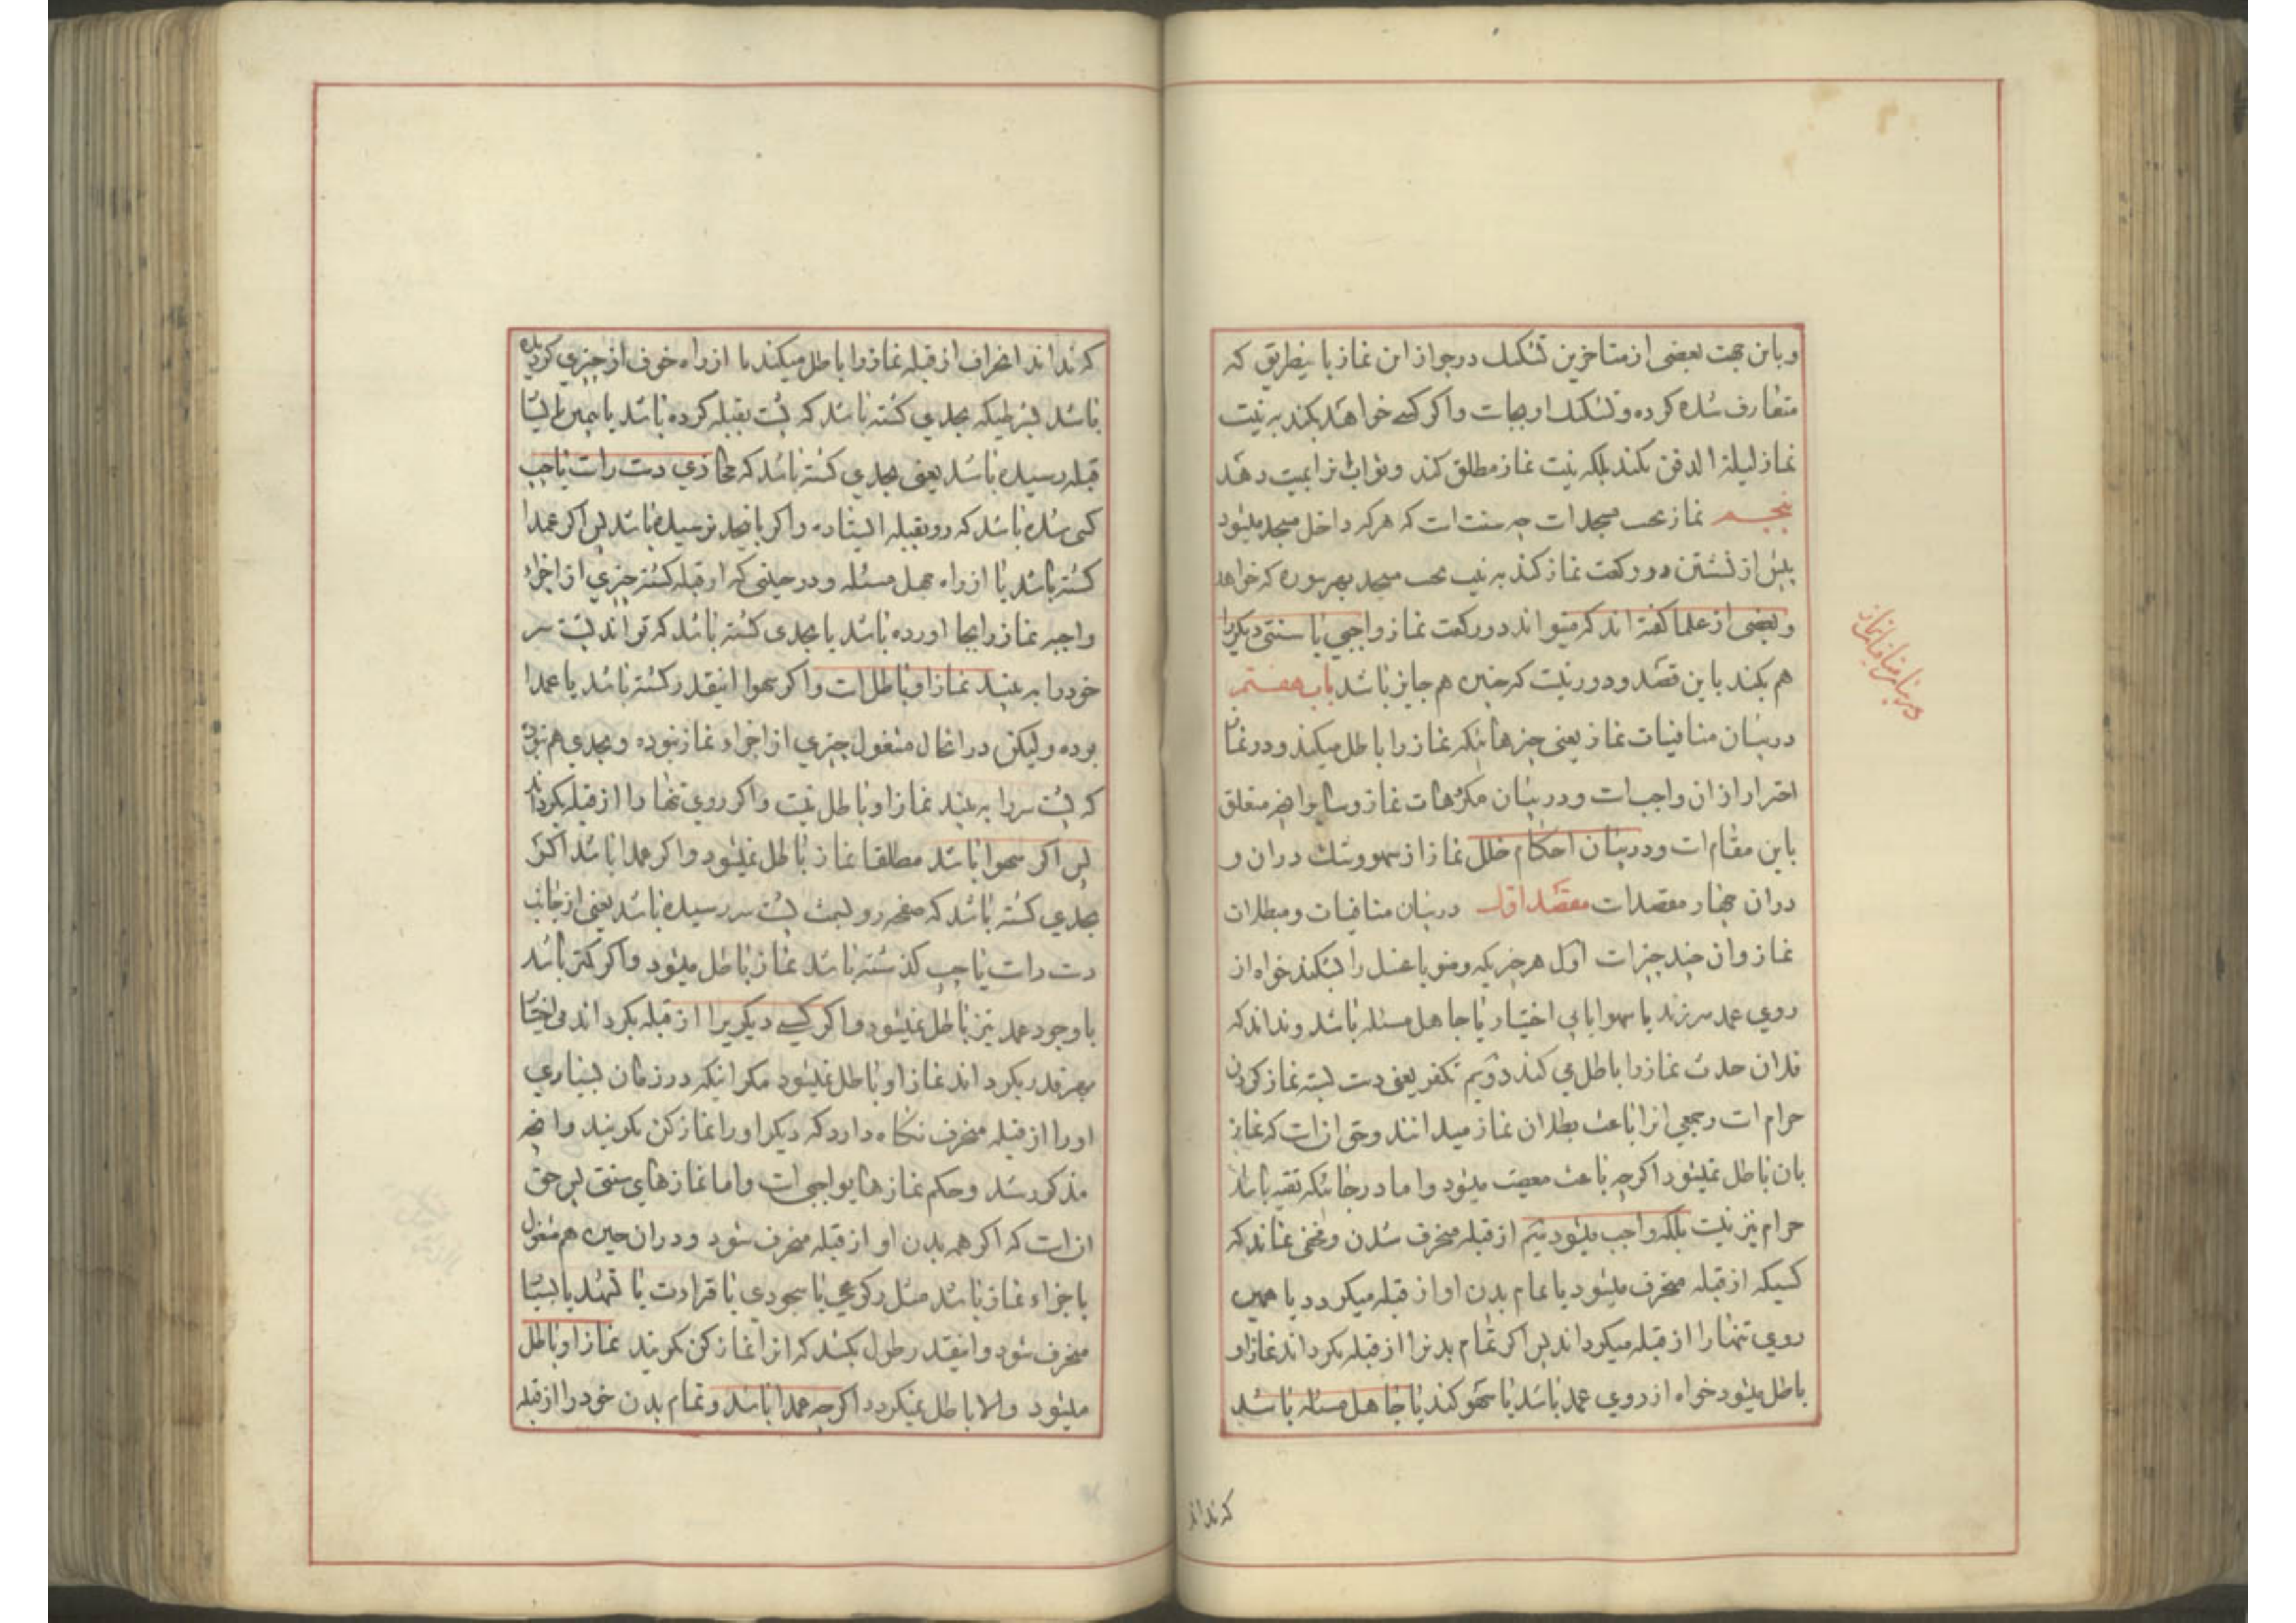 و باین جهت بعضی از متاخرین تشکیک در جواز این نماز باینطریق که
متعارف شده کرده و تشکیک او بجاست و اگر کسی خواهد بکند به نیت
نماز لیلة الدفن نکند بلکه نیت نماز مطلق کند و ثواب انرا بمیت دهد
پنجم نماز تحیت مسجد است چه سنت است که هر که داخل مسجد میشود
پیش از نشستن دو رکعت نماز کند به نیت تحیت مسجد بهر سوره که خواهد
و بعضی از علما گفته اند که میتواند دو رکعت نماز واجبی یا سنتی دیگر را
هم بکند باین قصد و دور نیست که چنین هم جایز باشد باب هفتم
در بیان منافیات نماز یعنی چیزهائیکه نماز را باطل میکند و در نماز
احتراز از ان واجب است و در بیان مکروهات نماز و سایر انچه متعلق
باین مقام است و در بیان احکام خلل نماز از سهو و شک در ان و
در ان چهار مقصد است مقصد اول در بیان منافیات و مبطلات
نماز و ان چند چیز است اول هر چیزیکه وضو یا غسل را بشکند خواه از
روی عمد سر زند یا سهوا یا بی اختیار یا جاهل مسئله باشد و نداند که
فلان حدث نماز را باطل می کند دویم تکفیر یعنی دست بسته نماز کردن
حرام است و جمعی انرا باعث بطلان نماز میدانند و حق انست که نماز
بان باطل نمیشود اگر چه باعث معصیت میشود و اما در جائیکه تقیه باشد
حرام نیز نیست بلکه واجب میشود سیم از قبله منحرف شدن و مخفی نماند که
کسیکه از قبله منحرف میشود یا تمام بدن او از قبله میگردد یا همین
روی تنها را از قبله میگرداند پس اگر تمام بدنرا از قبله بگرداند نماز او
باطل میشود خواه از روی عمد باشد یا سهو کند یا جاهل مسئله باشد
که نداند
در بیان منافیات نماز
که نداند انحراف از قبله نماز را باطل میکند یا از راه خوف از چیزی کرده
باشد بشرطیکه بحدی گشته باشد که پشت بقبله کرده باشد یا بیمین یا یسار
قبله رسیده باشد یعنی بحدی گشته باشد که محاذی دست راست یا چپ
کسی شده باشد که رو بقبله ایستاده و اگر باینحد نرسیده باشد پس اگر عمدا
گشته باشد یا از راه جهل مسئله و در حینی که از قبله گشته چیزی از اجزاء
واجبه نماز را بجا اورده باشد یا بحدی گشته باشد که تواند پشت سر
خود را به بیند نماز او باطل است و اگر سهوا اینقدر گشته باشد یا عمدا
بوده و لیکن در انحال مشغول چیزی از اجزاء نماز نبوده و بحدی هم نبوده
که پشت سر را به بیند نماز او باطل نیست و اگر روی تنها را از قبله بگرداند
پس اگر سهوا باشد مطلقا نماز باطل نمیشود و اگر عمدا باشد اگر
بحدی گشته باشد که صفحه رو بسمت پشت سر رسیده باشد یعنی از جانب
دست راست یا چپ گذشته باشد نماز باطل میشود و اگر کمتر باشد
با وجود عمد نیز باطل نمیشود و اگر کسی دیگریرا از قبله بگرداند بی اختیار
بهر قدر بگرداند نماز او باطل نمیشود مگر اینکه در زمان بسیاری
او را از قبله منحرف نگاه دارد که دیگر او را نماز کن نگویند و انچه
مذکور شد و حکم نمازهای واجبی است و اما نمازهای سنتی پس حق
انست که اگر همه بدن او از قبله منحرف شود و در ان حین هم مشغول
باجزاء نماز باشد مثل رکوعی یا سجودی یا قراءت یا تشهد یا بسیار
منحرف شود و اینقدر طول بکشد که انرا نماز کن نگویند نماز او باطل
میشود والا باطل نمیگردد اگر چه عمدا باشد و تمام بدن خود را از قبله